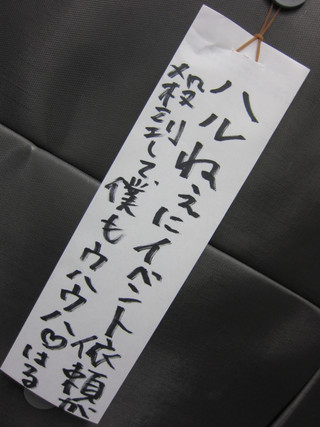 ハルねぇにイベント依頼が
殺到して、僕もウハウハ♡はる